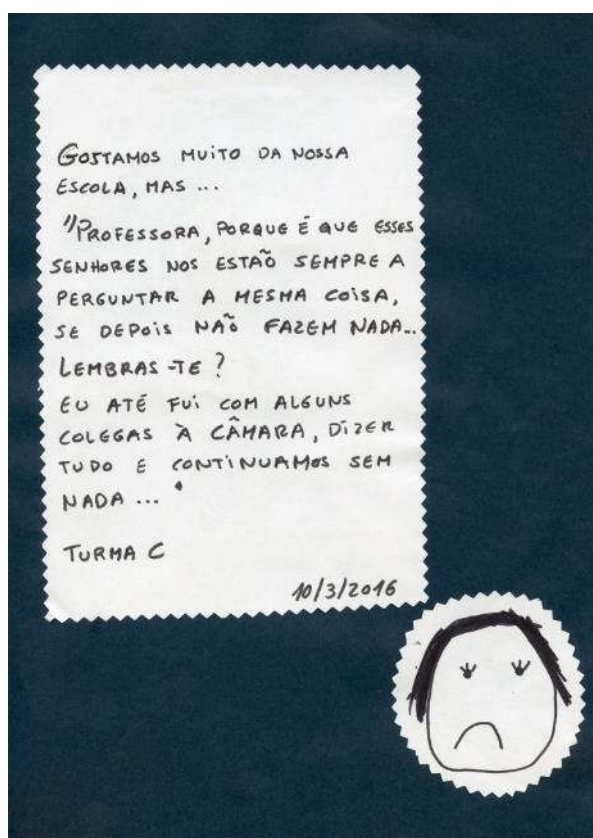 GOSTAMOS MUITO DA NOSSA
ESCOLA, MAS ...
"PROFESSORA, PORQUE É QUE ESSES
SENHORES NOS ESTÃO SEMPRE A
PERGUNTAR A MESMA COISA,
SE DEPOIS NÃO FAZEM NADA...
LEMBRAS-TE?
EU ATÉ FUI COM ALGUNS
COLEGAS À CÂMARA, DIZER
TUDO E CONTINUAMOS SEM
NADA ..."
TURMA C
10/3/2016